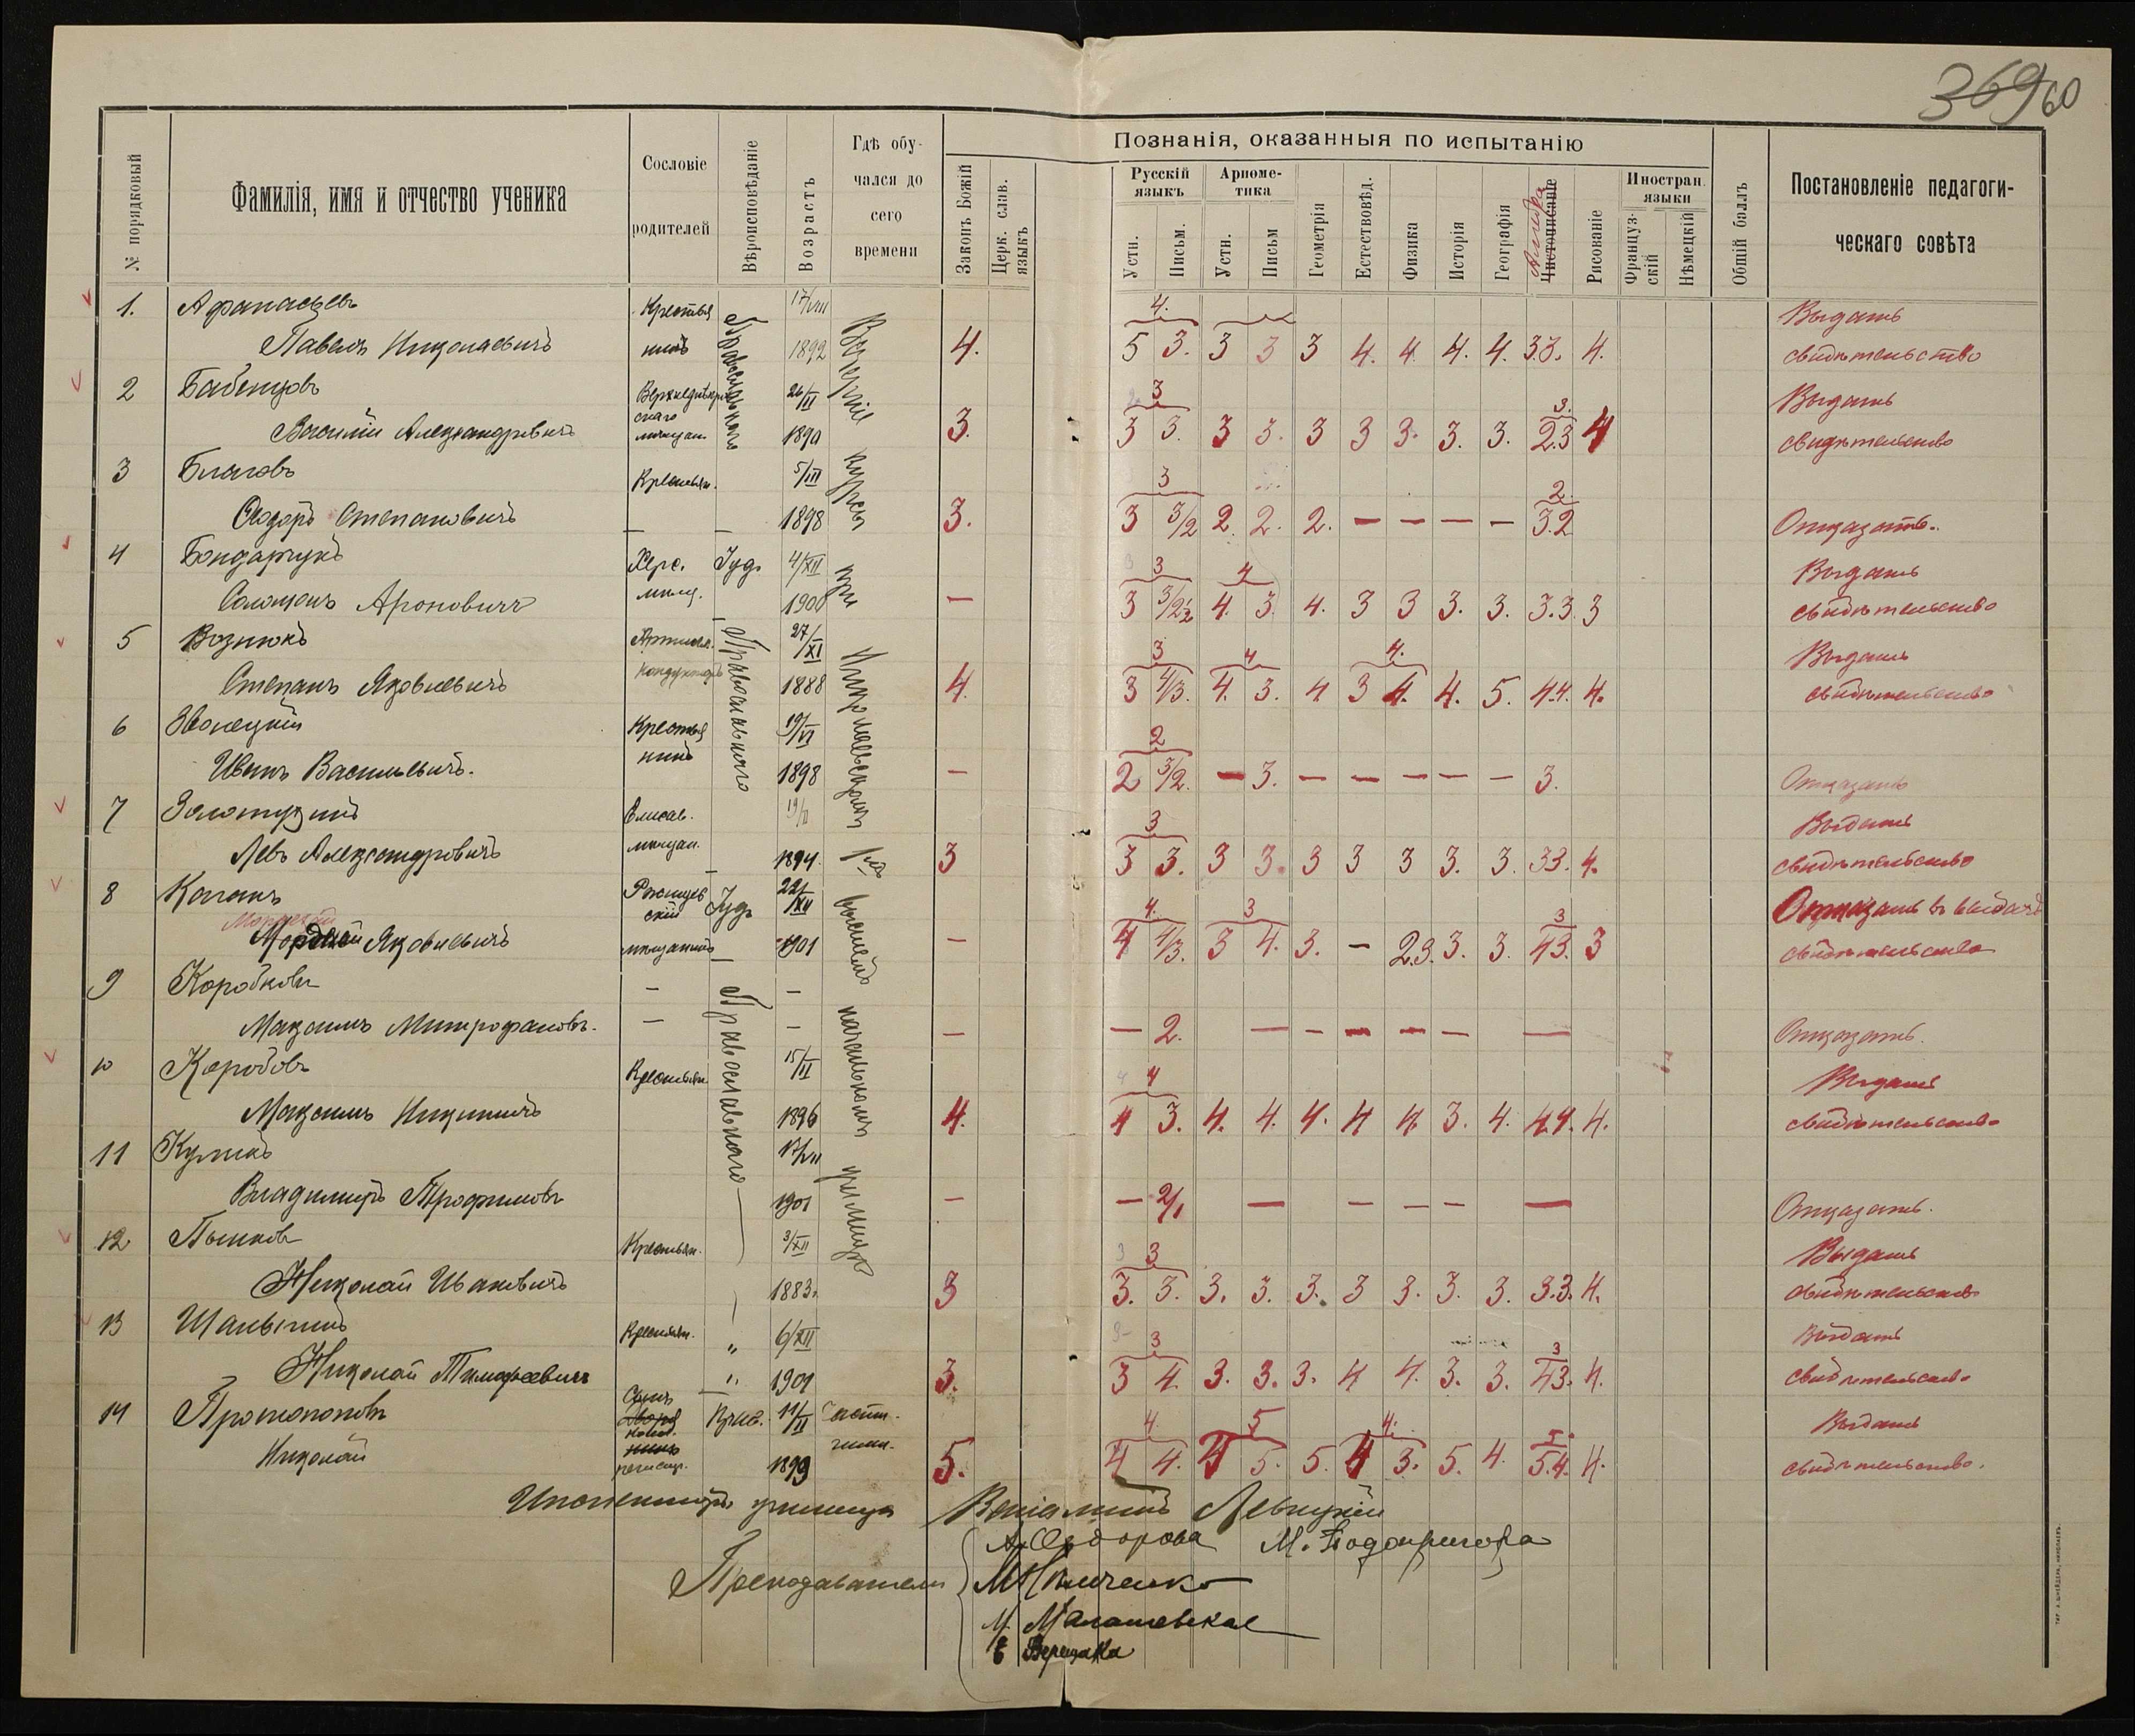 369 60
№ порядковый
Фамилія, имя и отчество ученика
Сословіе родителей
Вѣроисповѣданіе
Возрастъ
Гдѣ обучался до сего времени
Познанія, оказанныя по испытанію
Законъ Божій
Церк. слав. языкъ
Русскій языкъ
Устн.
Письм.
Арпоме-тика
Устн.
Письм
Геометрія
Естествовѣд.
Физика
Исторія
Географія
Чистописаніе
Рисованіе
Иностран. языки
Француз-скій
Нѣмецкій
Общій баллъ
Постановленіе педагоги-ческаго совѣта
Православнаго
Вечерніе курсы при Николаевскомъ 1мъ высшемъ начальномъ училищѣ
1. Афанасьевъ Крестья 17/VIII 4. Выдать
Павелъ Николаевичъ нинъ 1892 4. 5 3. 3 3 3 4. 4. 4. 4. 3.3. 4. свидѣтельство
2 Бабенцовъ 26/II 3 3. Выдать
Василій Александровичъ мѣщан. 1890 3. 3 3. 3 3. 3 3 3. 3. 3. 2.3 4 свидѣтельство
3 Благовъ Крестьян. 5/III 3 2.
Ѳеодоръ Степановичъ — — 1898 3. 3 3/2 2. 2. 2. — — — — 3.2 Отказать.
4 Бондарчукъ Херс. Іуд. 4/XII 3 4 Выдать
Соломонъ Ароновичъ мѣщ. 1900 — 3 4. 3. 4. 3 3 3. 3. 3.3. 3 свидѣтельство
Православнаго
5 Вознюкъ 27/XI 3 4 4. Выдать
Степанъ Яковлевичъ кондукторъ 1888 4. 3 4/3. 4. 3. 4 3 4. 4. 5. 4.4. 4. свидѣтельство
6 Звонецкій Крестья 19/VI 2
Иванъ Васильевичъ. нинъ 1898 — 2 3/2. — 3. — — — — — 3. Отказать
7 Золотухинъ Елисав. 3 Выдать
Левъ Александровичъ мѣщан. 1894. 3 3 3. 3 3. 3 3 3 3. 3. 33. 4. свидѣтельство
8 Каганъ Іуд. 22/XII 4. 3 3 Отказать въ выдачѣ
Мордхай Яковлевичъ мѣщанинъ 1901 — 4 4/3. 3 4. 3. — 2.3. 3. 3. 43. 3 свидѣтельства
Православнаго
9 Коробковъ — —
Максимъ Митрофановъ. — — — — 2. — — — — — — Отказать.
10 Коробовъ Крестьян. 15/II 4 Выдать
Максимъ Никитичъ 1896 4. 4 3. 4. 4. 4. 4 4. 3. 4. 4.4. 4. свидѣтельство
11 Куликъ 17/VII
Владимиръ Трофимовъ 1901 — — 2/1 — — — — — Отказать.
12 Пышковъ Крестьян. 3/XII 3 Выдать
Николай Ивановичъ 1883. 3 3. 3. 3. 3. 3. 3 3. 3. 3. 3.3. 4. свидѣтельство
13 Шалыгинъ Крестьян. " 6/XII 3 3 Выдать
Николай Тимофеевичъ " 1901 3. 3 4. 3. 3. 3. 4 4. 3. 3. 43. 4. свидѣтельство
14 Протопоповъ Сынъ 11/II 4. 5 4. 5. Выдать
Николай 1899 5. 4 4. 4 5. 5. 4 3. 5. 4. 5.4. 4. свидѣтельство.
Инспекторъ училища Веніаминъ Левицкій
Преподаватели
А. Ѳедорова М. Подопригора
М. Малашевская